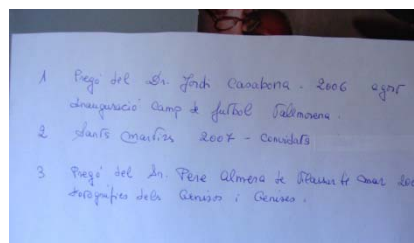 1 Pregó del Dr. Jordi Casabona. 2006 agost
Inauguració Camp de futbol Vallmorena.
2 Sants Martirs 2007 - Convidats
3 Pregó del Dr. Pere Almera de Vilassar de Mar 200
Fotogràfies dels Geníssos i Genises.